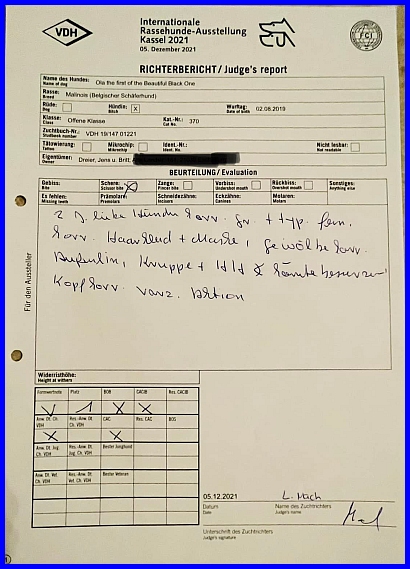 VDH
Internationale
Rassehunde-Ausstellung
Kassel 2021
05. Dezember 2021
FCI
RICHTERBERICHT / Judge's report
Name des Hundes: Ola the first of the Beautiful Black One
Name of dog
Rasse: Malinois (Belgischer Schäferhund)
Breed
Rüde: Hündin: X Wurftag: 02.08.2019
Dog Bitch Date of birth
Klasse: Offene Klasse Kat.-Nr.: 370
Class Cat. No.
Zuchtbuch-Nr.: VDH 19/147 01221
Studbook number
Tätowierung: Mikrochip: Ident.-Nr.: Nicht lesbar:
Tattoo Microchip Ident. No. Not readable
Eigentümer: Dreier, Jens u. Britt,
Owner
BEURTEILUNG / Evaluation
Gebiss: Schere: X Zange: Vorbiss: Rückbiss: Sonstiges:
Bite Scissor bite Pincer bite Undershot mouth Overshot mouth Anything else
Es fehlen: Prämolare: Schneidezähne: Eckzähne: Molaren:
Missing teeth Premolars Incisors Canines Molars
2 J. Hündin korr. Gr. + Typ. fem.
korr. Haarkleid + Maske,
Kruppe + könnte besser
Kopf korr. vorz. Aktion
Für den Aussteller
Widerristhöhe:
Height at withers
Formwertnote Platz BOB CACIB Res. CACIB
V 1 X X
Anw. Dt. Ch. VDH Res.-Anw. Dt. Ch. VDH CAC Res. CAC BOS
X X
Anw. Dt. Jug. Ch. VDH Res.-Anw. Dt. Jug. Ch. VDH Bester Junghund
Anw. Dt. Vet. Ch. VDH Res.-Anw. Dt. Vet. Ch. VDH Bester Veteran
05.12.2021 L. Mach
Datum Name des Zuchtrichters
Date Judge's name
Unterschrift des Zuchtrichters
Judge's signature